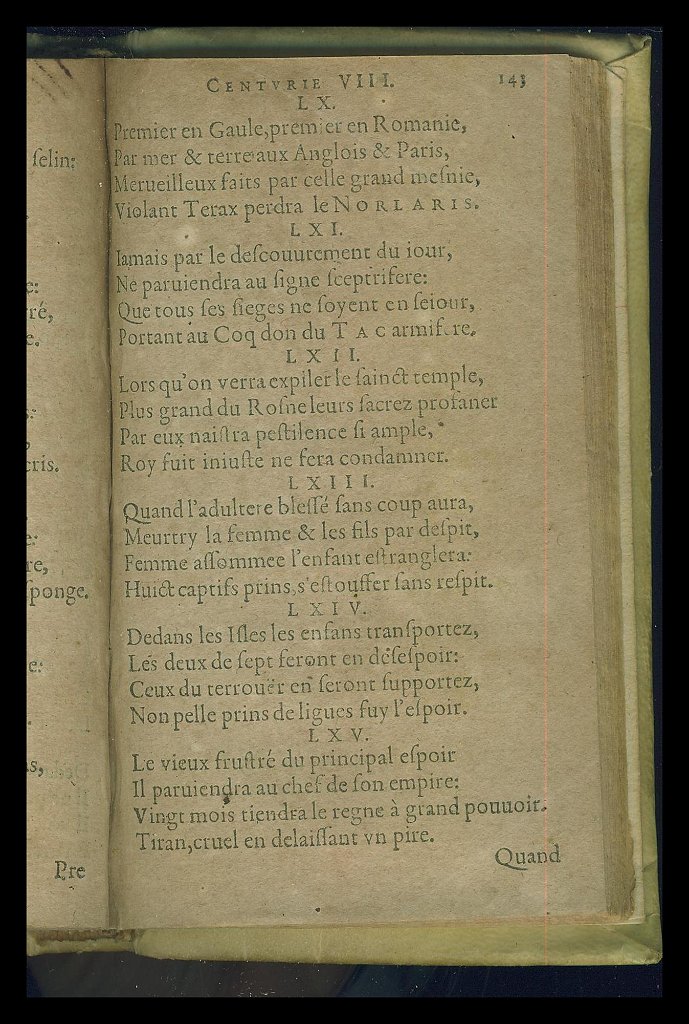 ſelin:
e:
ré,
e.
cris.
e:
re,
ſponge.
e:
s,
Pre
CENTVRIE VIII. 143
LX.
Premier en Gaule,premier en Romanie,
Par mer & terre aux Anglois & Paris,
Merueilleux faits par celle grand meſnie,
Violant Terax perdra le NORLARIS.
LXI.
Iamais par le deſcouurement du iour,
Ne paruiendra au ſigne ſceptrifere:
Que tous ſes ſieges ne ſoyent en ſeiour,
Portant au Coq don du TAC armifere.
LXII.
Lors qu'on verra expiler le ſainct temple,
Plus grand du Roſne leurs ſacrez profaner
Par eux naiſtra peſtilence ſi ample,
Roy fuit iniuſte ne fera condamner.
LXIII.
Quand l'adultere bleſſé ſans coup aura,
Meurtry la femme & les fils par deſpit,
Femme aſſommee l'enfant eſtranglera:
Huict captifs prins,s'eſtouffer ſans reſpit.
LXIV.
Dedans les Iſles les enfans tranſportez,
Les deux de ſept ſeront en deſeſpoir:
Ceux du terrouër en ſeront ſupportez,
Non pelle prins de ligues fuy l'eſpoir.
LXV.
Le vieux fruſtré du principal eſpoir
Il paruiendra au chef de ſon empire:
Vingt mois tiendra le regne à grand pouuoir.
Tiran,cruel en delaiſſant vn pire.
Quand